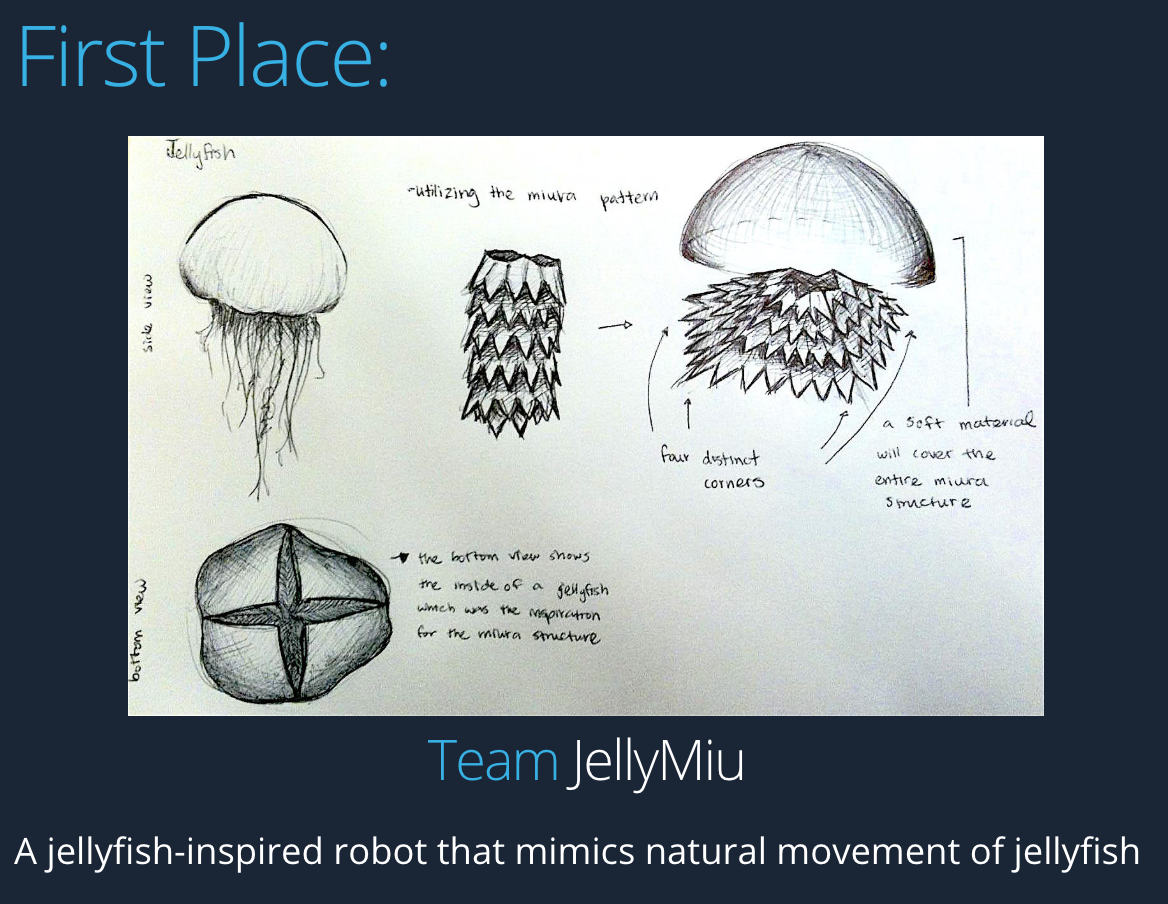 First Place:
Jellyfish
-utilizing the miura pattern
side view
four distinct
corners
a soft material
will cover the
entire miura
structure
bottom view
the bottom view shows
the inside of a jellyfish
which was the inspiration
for the miura structure
Team JellyMiu
A jellyfish-inspired robot that mimics natural movement of jellyfish